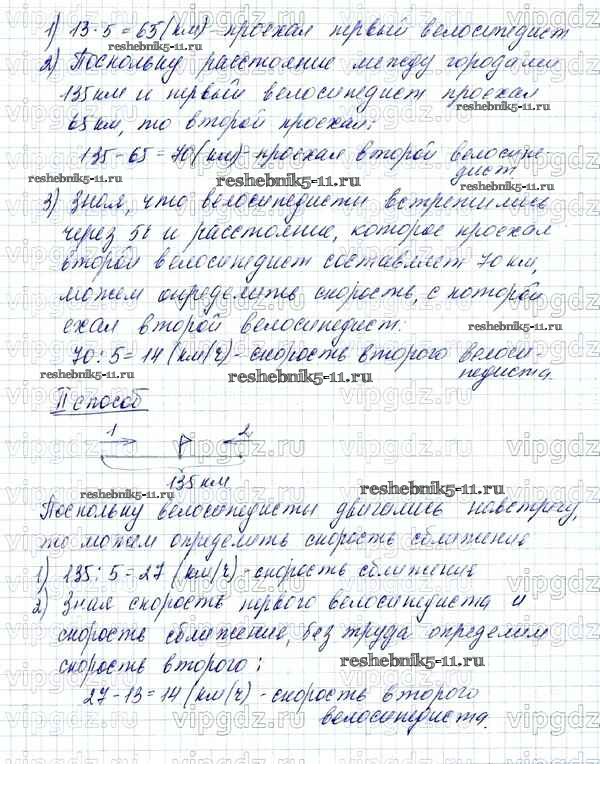 1) 13·5=65(км)-проехал первый велосипедист
reshebnik5-11.ru
2) Поскольку расстояние между городами
135 км и первый велосипедист проехал
reshebnik5-11.ru
65 км, то второй проехал:
135-65=70(км)-проехал второй велосипе-
дист
reshebnik5-11.ru
reshebnik5-11.ru
3) Зная, что велосипедисты встретились
через 5ч и расстояние, которое проехал
второй велосипедист составляет 70 км,
можем определить скорость, с которой
ехал второй велосипедист:
reshebnik5-11.ru
70:5=14 (км/ч)-скорость второго велоси-
педиста.
reshebnik5-11.ru
II способ
1 2
135 км
reshebnik5-11.ru
reshebnik5-11.ru
Поскольку велосипедисты двигались навстречу,
то можем определить скорость сближения
1) 135:5=27 (км/ч)-скорость сближения
2) Зная скорость первого велосипедиста и
скорость сближения, без труда определим
скорость второго:
reshebnik5-11.ru
27-13=14(км/ч)-скорость второго
велосипедиста.
vipgdz.ru